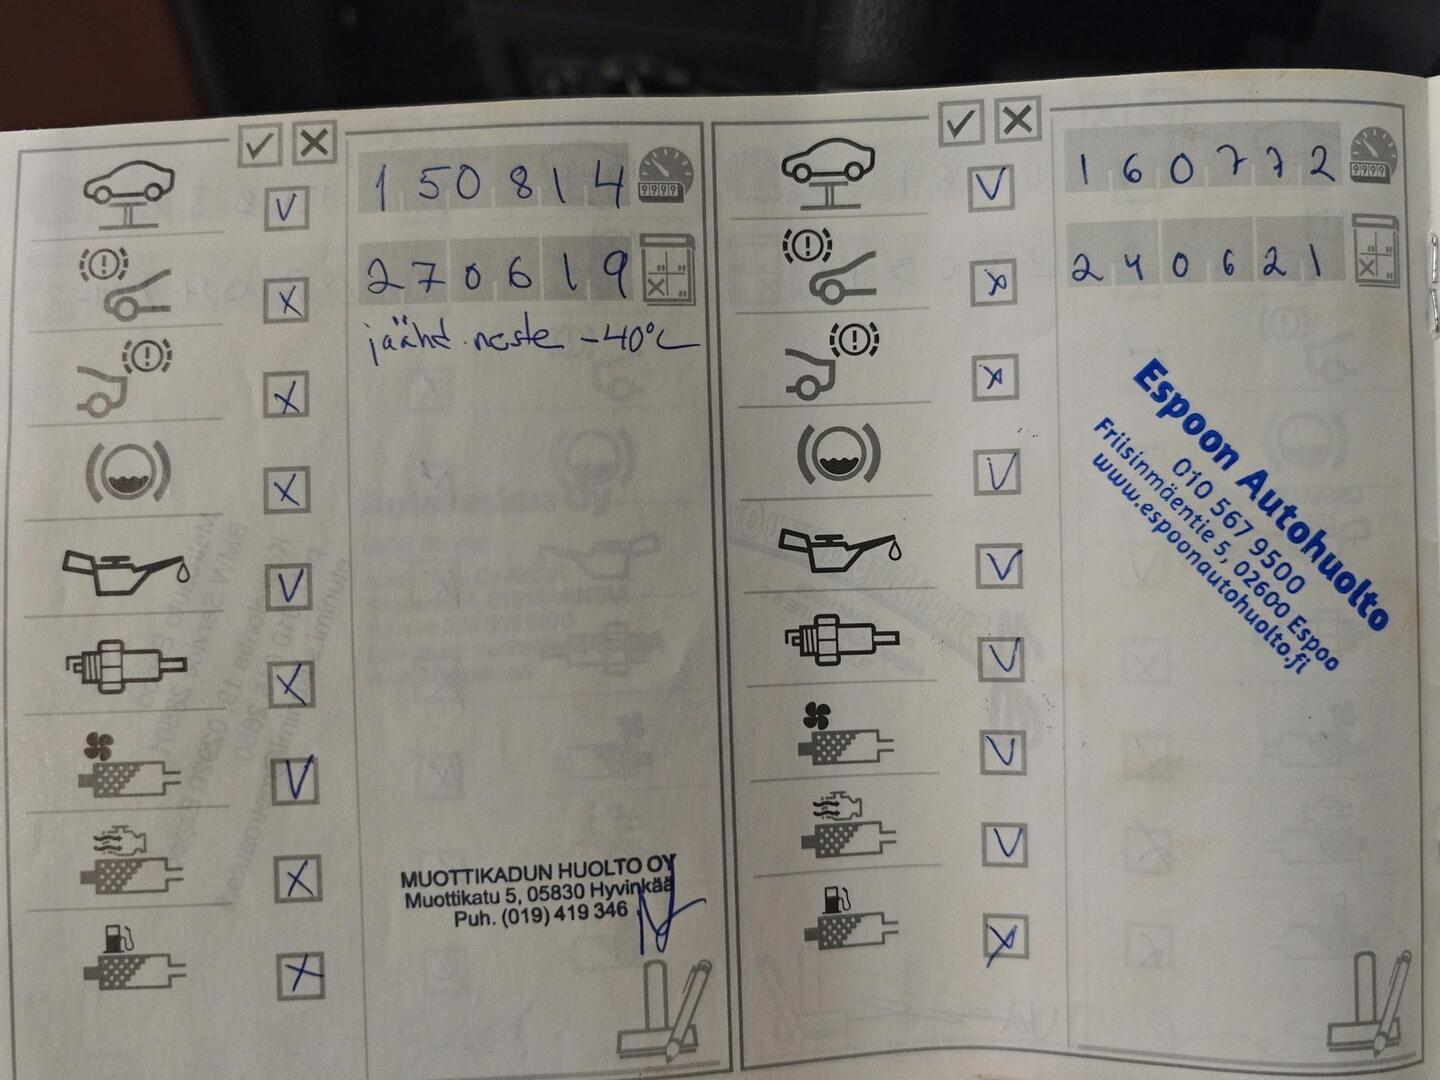 150814
9999
270619
jäähd. neste -40°C
MUOTTIKADUN HUOLTO OY
Muottikatu 5, 05830 Hyvinkää
Puh. (019) 419 346
160772
9999
240621
Espoon Autohuolto
010 567 9500
Friisinmäentie 5, 02600 Espoo
www.espoonautohuolto.fi